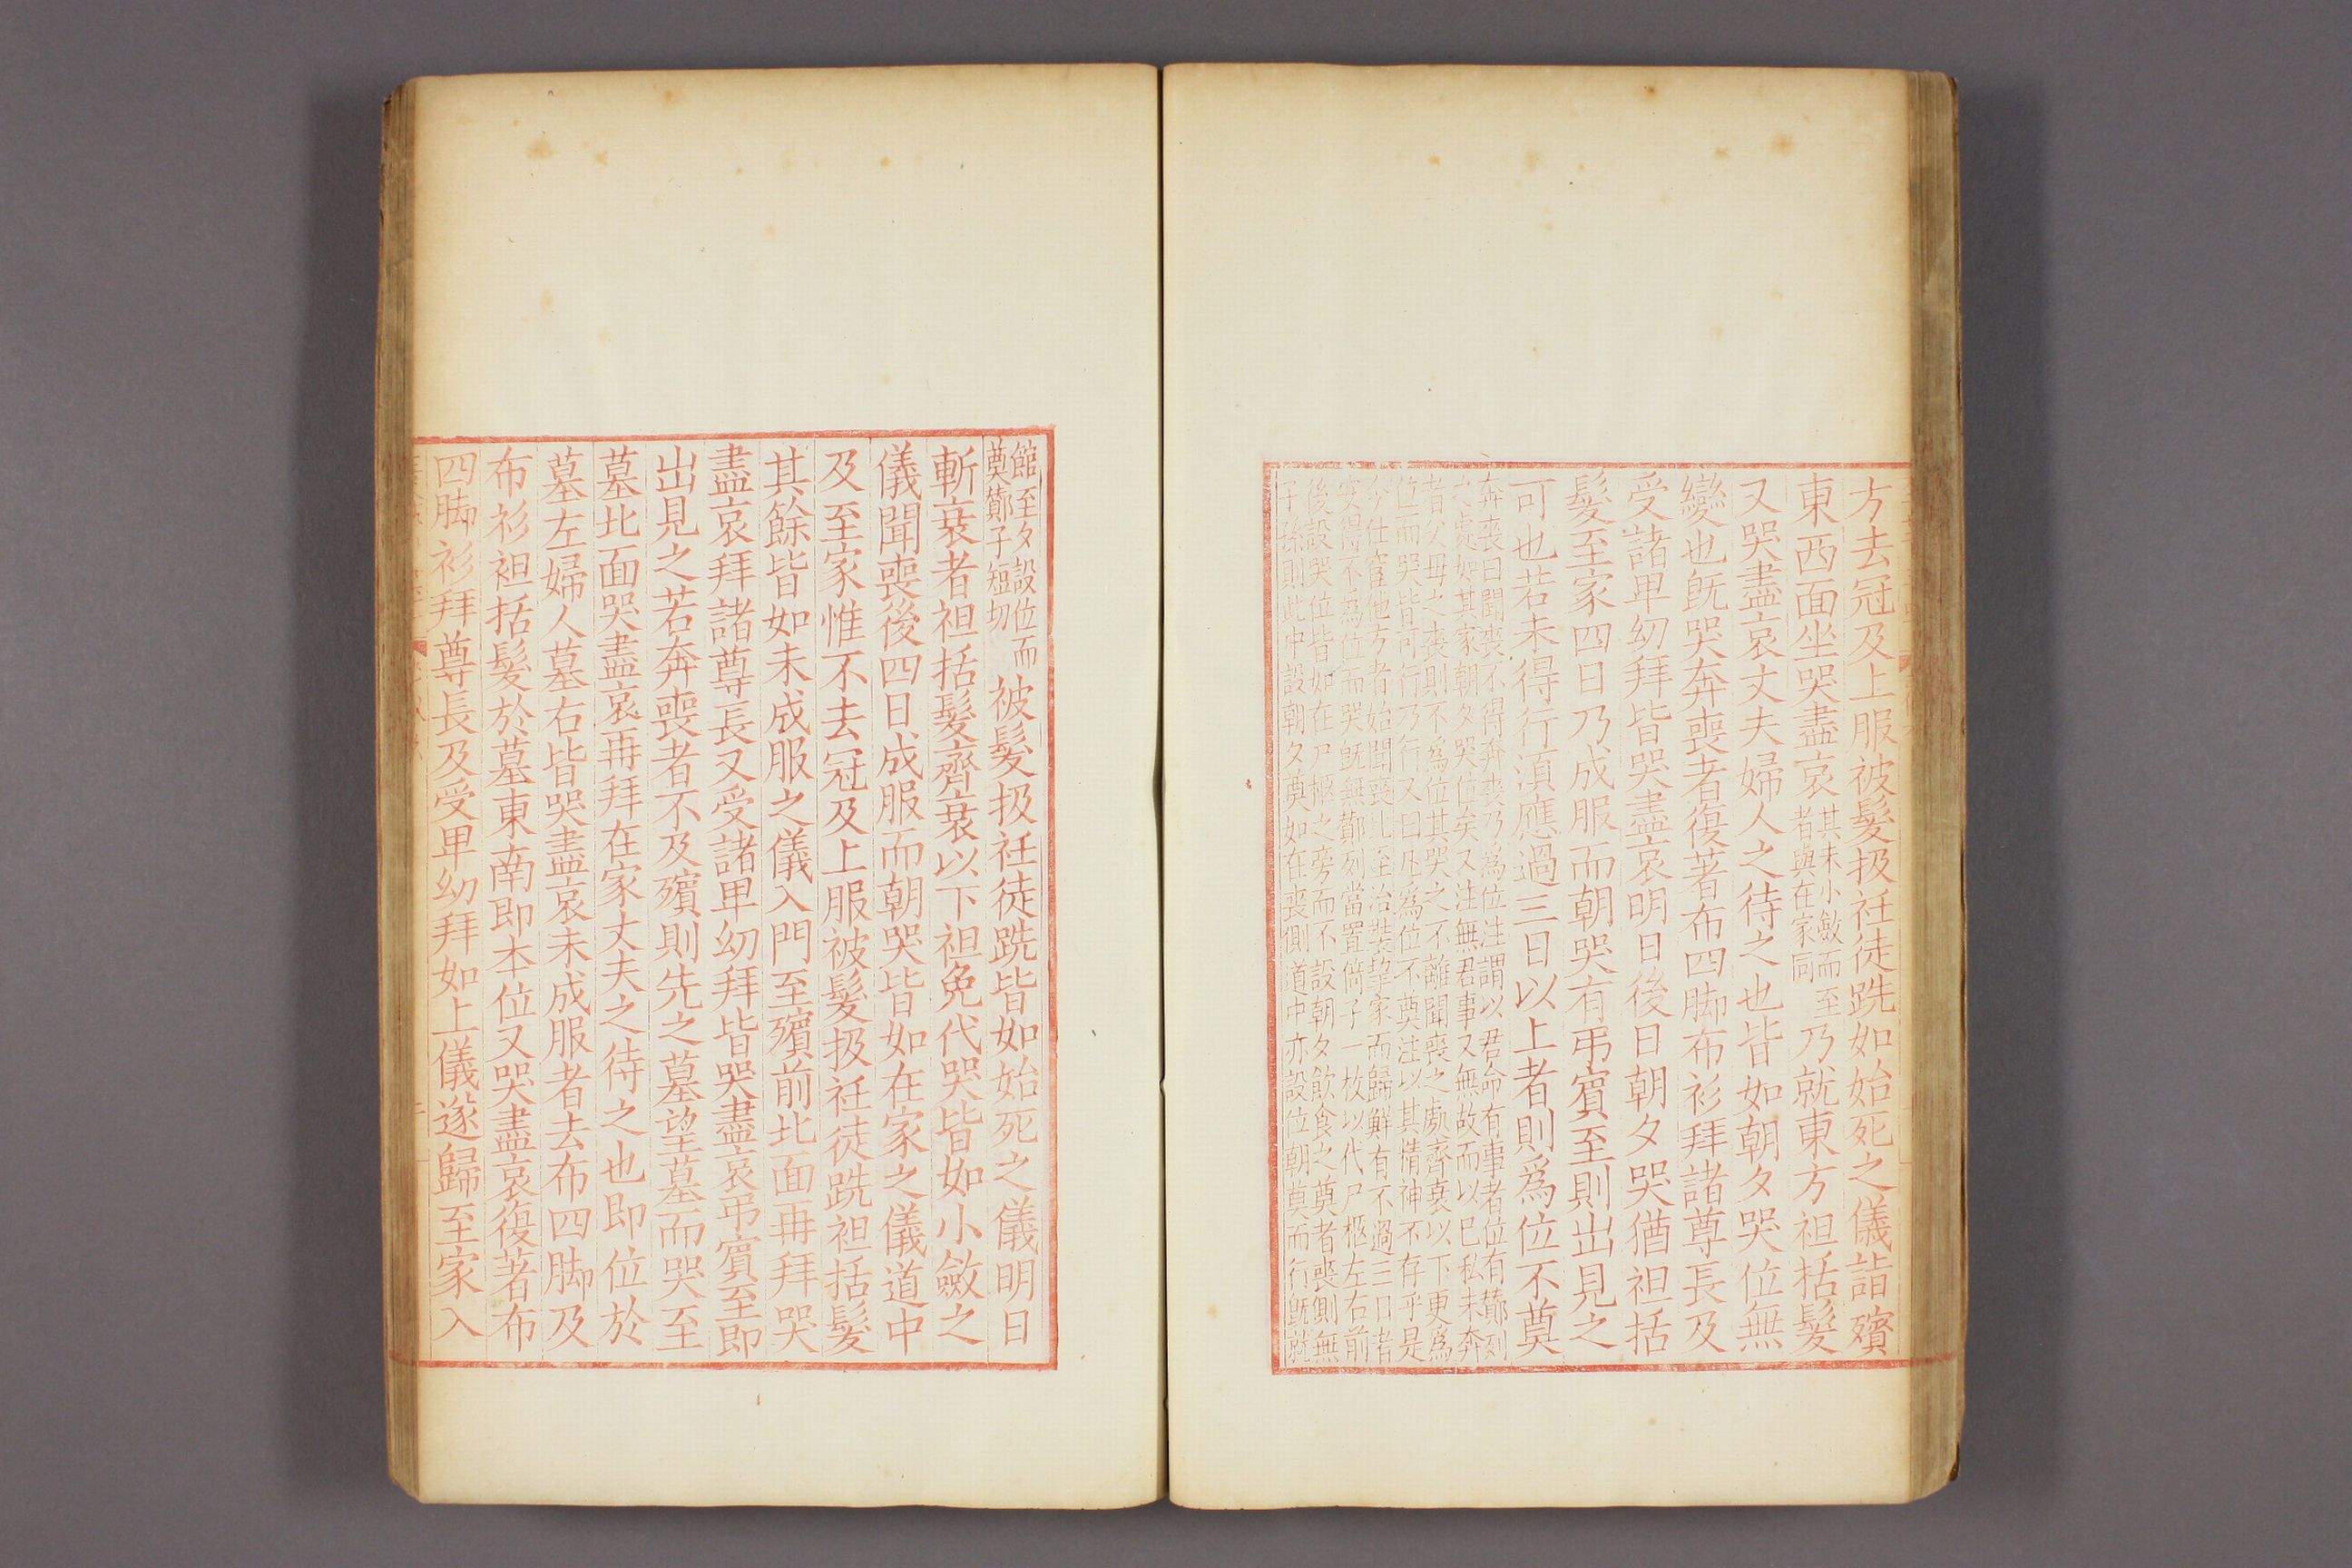 方去冠及上服被髮扱衽徒跣如始死之儀詣殯
東西面坐哭盡哀其未小斂而至者與在家同乃就東方袒括髮
又哭盡哀丈夫婦人之待之也皆如朝夕哭位無
變也旣哭奔喪者復著布四脚布衫拜諸尊長及
受諸卑幼拜皆哭盡哀明日後日朝夕哭猶袒括
髮至家四日乃成服而朝哭有弔賓至則出見之
可也若未得行湏應過三日以上者則爲位不奠
奔喪曰聞喪不得奔喪乃為位注謂以君命有事者位有酇列
之處如其家朝夕哭位矣又注無君事又無故而以已私未奔
者父母之喪則不為位其哭之不離聞喪之處齊衰以下更為
位而哭皆可行乃行又曰凡為位不奠注以其精神不存乎是
今仕宦他方者始聞喪比至治裝挈家而歸鮮有不過三日者
安得不為位而哭旣無酇列當置倚子一枚以代尸柩左右前
後設哭位皆如在尸柩之旁而不設朝夕飲食之奠者喪側無
子孫則此中設朝夕奠如在喪側道中亦設位朝奠而行旣就
館至夕設位而
奠酇子短切
被髮扱衽徒跣皆如始死之儀明日
斬衰者袒括髮齊衰以下袒免代哭皆如小斂之
儀聞喪後四日成服而朝哭皆如在家之儀道中
及至家惟不去冠及上服被髮扱衽徒跣袒括髮
其餘皆如未成服之儀入門至殯前北面再拜哭
盡哀拜諸尊長又受諸卑幼拜皆哭盡哀弔賓至即
出見之若奔喪者不及殯則先之墓望墓而哭至
墓北面哭盡哀再拜在家丈夫之待之也即位於
墓左婦人墓右皆哭盡哀未成服者去布四脚及
布衫袒括髮於墓東南即本位又哭盡哀復著布
四脚衫拜尊長及受卑幼拜如上儀遂歸至家入